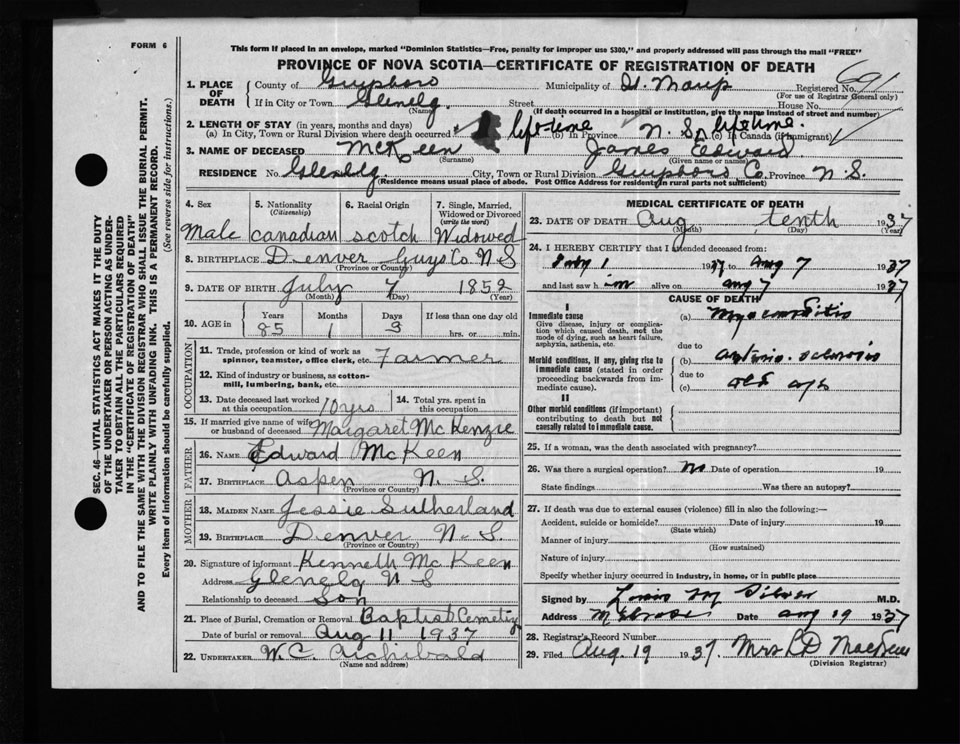 FORM 6
This form if placed in an envelope, marked "Dominion Statistics—Free, penalty for improper use $300," and properly addressed will pass through the mail "FREE"
PROVINCE OF NOVA SCOTIA—CERTIFICATE OF REGISTRATION OF DEATH
1. PLACE OF DEATH
County of Guysboro Municipality of St. Marys Registered No. 691
(For use of Registrar General only)
If in City or Town Glenelg. Street House No.
(Name) (If death occurred in a hospital or institution, give the name instead of street and number)
2. LENGTH OF STAY (in years, months and days)
(a) In City, Town or Rural Division where death occurred lifetime (b) in Province N.S. (c) In Canada (if immigrant) lifetime.
3. NAME OF DECEASED McKeen James Edward
(Surname) (Given name or names)
RESIDENCE No. Glenelg City, Town or Rural Division Guysboro Co. Province N.S.
(Residence means usual place of abode. Post Office Address for residents in rural parts not sufficient)
4. Sex Male
5. Nationality (Citizenship) Canadian
6. Racial Origin Scotch
7. Single, Married, Widowed or Divorced (write the word) Widowed
8. BIRTHPLACE Denver Guys Co. N S
(Province or Country)
9. DATE OF BIRTH July 7 1852
(Month) (Day) (Year)
10. AGE in Years 85 Months 1 Days 3 If less than one day old hrs. or min.
OCCUPATION
11. Trade, profession or kind of work as spinner, teamster, office clerk, etc. Farmer
12. Kind of industry or business, as cotton-mill, lumbering, bank, etc.
13. Date deceased last worked at this occupation 10 yrs
14. Total yrs. spent in this occupation
15. If married give name of wife or husband of deceased Margaret McKenzie
FATHER
16. NAME Edward McKeen
17. BIRTHPLACE Aspen N. S.
(Province or Country)
MOTHER
18. MAIDEN NAME Jessie Sutherland
19. BIRTHPLACE Denver N.S.
(Province or Country)
20. Signature of informant Kenneth McKeen
Address Glenelg N S
Relationship to deceased Son
21. Place of Burial, Cremation or Removal Baptist Cemetry
Date of burial or removal Aug 11 1937
22. UNDERTAKER W. C. Archibald
(Name and address)
MEDICAL CERTIFICATE OF DEATH
23. DATE OF DEATH Aug tenth 1937
(Month) (Day) (Year)
24. I HEREBY CERTIFY that I attended deceased from:
July 1 1937 to Aug 7 1937
and last saw him alive on Aug 7 1937
CAUSE OF DEATH
I
Immediate cause
Give disease, injury or complication which caused death, not the mode of dying, such as heart failure, asphyxia, asthenia, etc.
(a) Myocarditis
due to
Morbid conditions, if any, giving rise to immediate cause (stated in order proceeding backwards from immediate cause).
(b) arterio-sclerosis
due to
(c) old age
II
Other morbid conditions (if important) contributing to death but not causally related to immediate cause.
25. If a woman, was the death associated with pregnancy?
26. Was there a surgical operation? No Date of operation 19
State findings Was there an autopsy?
27. If death was due to external causes (violence) fill in also the following:—
Accident, suicide or homicide? Date of injury 19
(State which)
Manner of injury
(How sustained)
Nature of injury
Specify whether injury occurred in industry, in home, or in public place
Signed by M Silver M.D.
Address Date Aug 19 1937
28. Registrar's Record Number
29. Filed Aug. 19 1937. Mrs
(Division Registrar)
SEC. 46—VITAL STATISTICS ACT MAKES IT THE DUTY
OF THE UNDERTAKER OR PERSON ACTING AS UNDER-
TAKER TO OBTAIN ALL THE PARTICULARS REQUIRED
IN THE "CERTIFICATE OF REGISTRATION OF DEATH"
AND TO FILE THE SAME WITH THE DIVISION REGISTRAR WHO SHALL ISSUE THE BURIAL PERMIT.
WRITE PLAINLY WITH UNFADING INK. THIS IS A PERMANENT RECORD.
Every item of information should be carefully supplied. (See reverse side for instructions.)